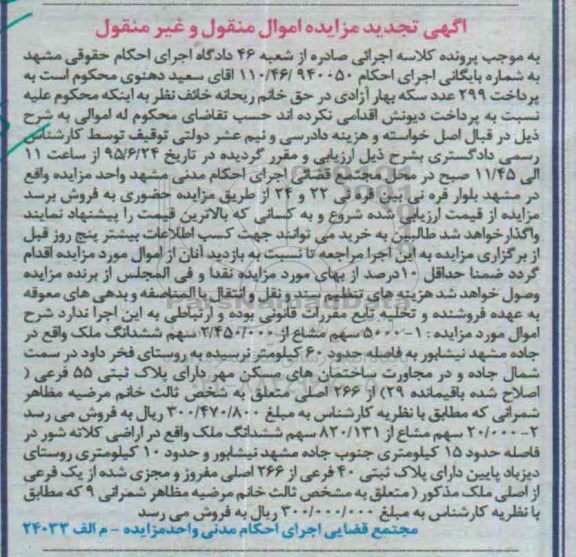 آگهی تجدید مزایده اموال منقول و غیر منقول
به موجب پرونده کلاسه اجرائی صادره از شعبه ۴۶ دادگاه اجرای احکام حقوقی مشهد
به شماره بایگانی اجرای احکام ۹۴۰۰۵۰ /۱۱۰/۴۶ آقای سعید دهنوی محکوم است به
پرداخت ۲۹۹ عدد سکه بهار آزادی در حق خانم ریحانه خائف نظر به اینکه محکوم علیه
نسبت به پرداخت دیونش اقدامی نکرده اند حسب تقاضای محکوم له اموالی به شرح
ذیل در قبال اصل خواسته و هزینه دادرسی و نیم عشر دولتی توقیف توسط کارشناس
رسمی دادگستری بشرح ذیل ارزیابی و مقرر گردیده در تاریخ ۹۵/۶/۲۴ از ساعت ۱۱
الی ۱۱/۴۵ صبح در محل مجتمع قضائی اجرای احکام مدنی مشهد واحد مزایده واقع
در مشهد بلوار قره نی بین قره نی ۲۲ و ۲۴ از طریق مزایده حضوری به فروش برسد
مزایده از قیمت ارزیابی شده شروع و به کسانی که بالاترین قیمت را پیشنهاد نمایند
واگذار خواهد شد طالبین به خرید می توانند جهت کسب اطلاعات بیشتر پنج روز قبل
از برگزاری مزایده به این اجرا مراجعه تا نسبت به بازدید آنان از اموال مورد مزایده اقدام
گردد ضمنا حداقل ۱۰درصد از بهای مورد مزایده نقدا و فی المجلس از برنده مزایده
وصول خواهد شد هزینه های تنظیم سند و نقل و انتقال بالمناصفه و بدهی های معوقه
به عهده فروشنده و تخلیه تابع مقررات قانونی بوده و ارتباطی به این اجرا ندارد شرح
اموال مورد مزایده : ۱-۵۰۰۰ سهم مشاع از ۲/۴۵۰/۰۰۰ سهم ششدانگ ملک واقع در
جاده مشهد نیشابور به فاصله حدود ۶۰ کیلومتر نرسیده به روستای فخر داود در سمت
شمال جاده و در مجاورت ساختمان های مسکن مهر دارای پلاک ثبتی ۵۵ فرعی (
اصلاح شده باقیمانده ۲۹) از ۲۶۶ اصلی متعلق به شخص ثالث خانم مرضیه مظاهر
شمرانی که مطابق با نظریه کارشناس به مبلغ ۳۰۰/۴۷۰/۸۰۰ ریال به فروش می رسد
۲-۲۰/۰۰۰ سهم مشاع از ۸۲۰/۱۳۱ سهم ششدانگ ملک واقع در اراضی کلاته شور در
فاصله حدود ۱۵ کیلومتری جنوب جاده مشهد نیشابور و حدود ۱۰ کیلومتری روستای
دیزباد پایین دارای پلاک ثبتی ۴۰ فرعی از ۲۶۶ اصلی مفروز و مجزی شده از یک فرعی
از اصلی ملک مذکور ( متعلق به مشخص ثالث خانم مرضیه مظاهر شمرانی ۹ که مطابق
با نظریه کارشناس به مبلغ ۳۰۰/۰۰۰/۰۰۰ ریال به فروش می رسد
مجتمع قضایی اجرای احکام مدنی واحدمزایده - م الف ۲۴۰۳۳